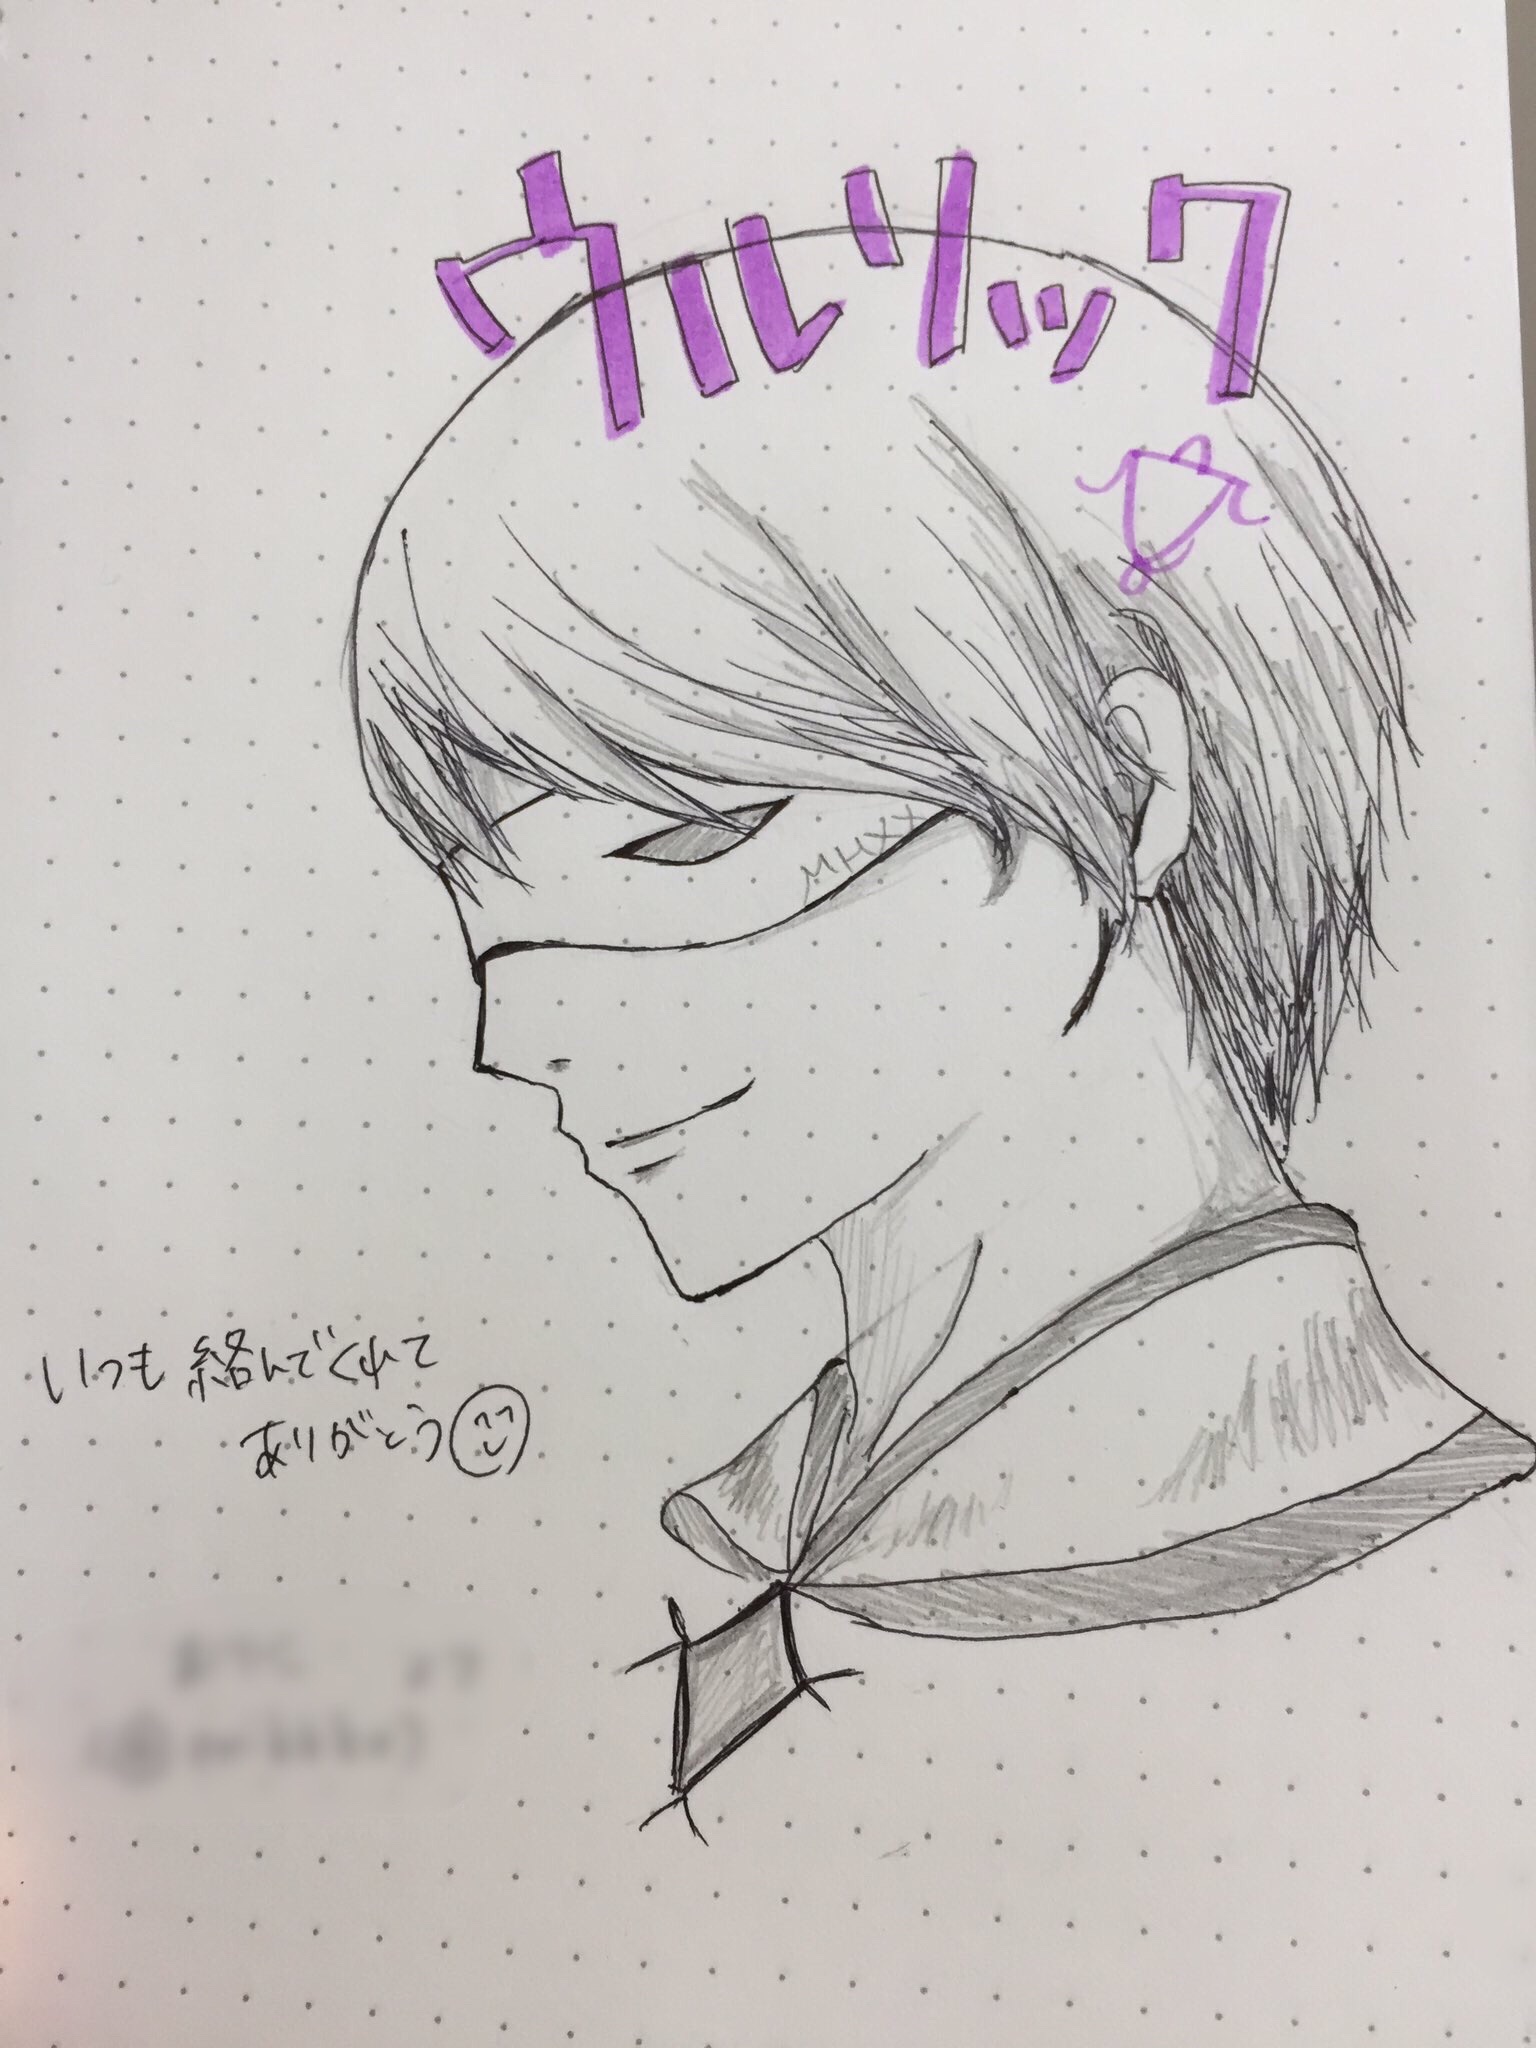 ウルリック
MHXX
いつも絡んでくれて
ありがとう